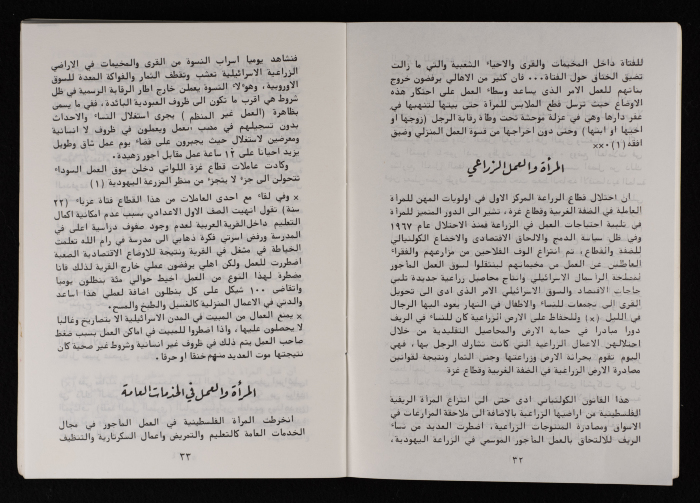 للفتاة داخل المخيمات والقرى والاحياء الشعبية والتي ما زالت
تضيق الخناق حول الفتاة... فان كثير من الاهالي يرفضون خروج
بناتهم للعمل الامر الذى يساعد وسطاء العمل على احتكار هذه
الاوضاع حيث ترسل قطع الملابس للمرأة حتى بيتها لتنهيها في
عقر دارها وهي في عزلة موحشة تحت وطأة رقابة الرجل (زوجها او
اخيها او ابنها) وحتى دون اخراجها من قسوة العمل المنزلي وضيق
افقه (١)×××
المرأة والعمل الزراعي
ان احتلال قطاع الزراعة المركز الاول في اولويات المهن للمرأة
العاملة في الضفة الغربية وقطاع غزة، تشير الى الدور المتميز للمرأة
في تلبية احتياجات العمل في الزراعة فمنذ الاحتلال عام ١٩٦٧
وفي ظل سياسة الدمج والالحاق الاقتصادى والاخضاع الكولنيالي
للضفة والقطاع، تم انتزاع الوف الفلاحين من مزارعهم والفقراء
العاطلين عن العمل من مخيماتهم لينتقلوا لسوق العمل المأجور
لمصلحة الرأسمال الاسرائيلي وانتاج محاصيل زراعية جديدة تلبي
حاجات الاقتصاد والسوق الاسرائيلي الامر الذى ادى الى تحويل
القرى الى تجمعات للنساء والاطفال في النهار يعود اليها الرجال
في الليل (×) وللحفاظ على الارض الزراعية كان للنساء في الريف
دورا مبادرا في حماية الارض والمحاصيل التقليدية من خلال
احتلالهن الاعمال الزراعية التي كانت تشارك الرجل بها، فهي
اليوم تقوم بحراثة الارض وزراعتها وجني الثمار ونتيجة لقوانين
مصادرة الارض الزراعية في الضفة الغربية وقطاع غزة
هذا القانون الكولنيالي ادى حتى الى انتزاع المرأة الريفية
الفلسطينية من اراضيها الزراعية بالاضافة الى ملاحقة المزارعات في
الاسواق ومصادرة المنتوجات الزراعية، اضطرت العديد من نساء
الريف للالتحاق بالعمل المأجور الموسمي في الزراعة اليهودية،
٣٢
فنشاهد يوميا اسراب النسوة من القرى والمخيمات في الاراضي
الزراعية الاسرائيلية تعشب وتقطف الثمار والفواكة المعدة للسوق
الاوروبية، وهولاء النسوة يعملن خارج اطار الرقابة الرسمية في ظل
شروط هي اقرب ما تكون الى ظروف العبودية البائدة، ففي ما يسمى
بظاهرة (العمل غير المنظم) يجرى استغلال النساء والاحداث
بدون تسجيلهم في مكتب العمل ويعملون في ظروف لا انسانية
ومعرضين لاستغلال حيث يجبرون على قضاء يوم عمل شاق وطويل
يزيد احيانا على ١٢ ساعة عمل مقابل اجور زهيدة.
وكادت عاملات قطاع غزة اللواتي دخلن سوق العمل السوداء
تتحولن الى جزء لا يتجزء من منظر المزرعة اليهودية (١)
× وفي لقاء مع احدى العاملات من هذا القطاع فتاة عزباء (٢٢
سنة) تقول انهيت الصف الاول الاعدادي بسبب عدم امكانية اكمال
التعليم داخل القرية العربية لعدم وجود صفوف دراسية اعلى في
المدرسة ورفض اسرتي فكرة ذهابي الى مدرسة في رام الله تعلمت
الخياطة في مشغل في القرية ونتيجة للاوضاع الاقتصادية الصعبة
اضطررت للعمل ولكن اهلي يرفضون عملي خارج القرية لذلك فانا
مضطرة لهذا النوع من العمل اخيط حوالي مئة بنطلون يوميا
واتقاضى ١٠٠ شيكل على كل بنطلون اضافة لعطي هذا اساعد
والدتي في الاعمال المنزلية كالغسيل والطبخ والمسح.
× يمنع العمال من المبيت في المدن الاسرائيلية الا بتصاريح وغالبا
لا يحصلون عليها، واذا اضطروا للمبيت في اماكن العمل بسبب ضغط
صاحب العمل يتم ذلك في ظروف غير انسانية وشروط غير صحية كان
نتيجتها موت العديد منهم خنقا او حرقا.
المرأة والعمل في الخدمات العامة
انخرطت المرأة الفلسطينية في العمل المأجور في مجال
الخدمات العامة كالتعليم والتمريض واعمال السكرتارية والتنظيف
٣٣